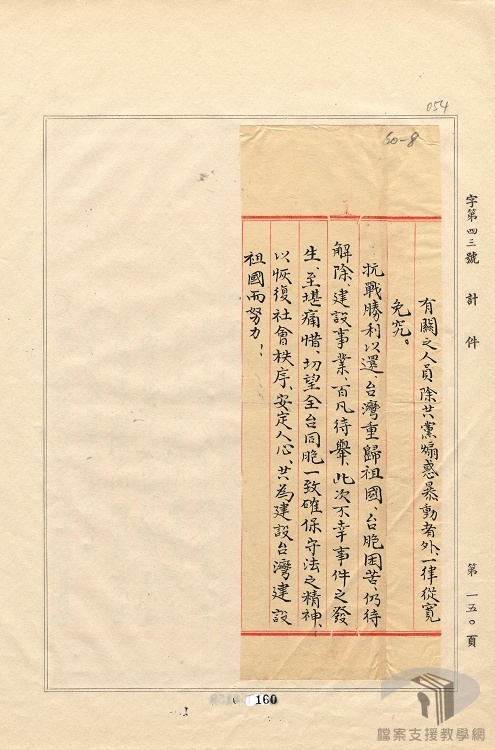 054
60-8
字第四三號 計 件
第一五〇頁
有關之人員除共黨煽惑暴動者外、一律從寬
免究。
抗戰勝利以還、台灣重歸祖國、台胞困苦、仍待
解除、建設事業、百凡待舉、此次不幸事件之發
生、至堪痛惜、切望全台同胞一致確保守法之精神、
以恢復社會秩序、安定人心、共為建設台灣建設
祖國而努力!
160
檔案支援教學網